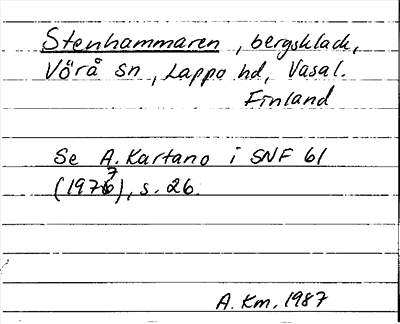 Stenhammaren, bergsklack,
Vörå sn, Lappo hd, Vasal.
Finland
Se A. Kartano i SNF 61
(1977), s. 26.
A. Km. 1987